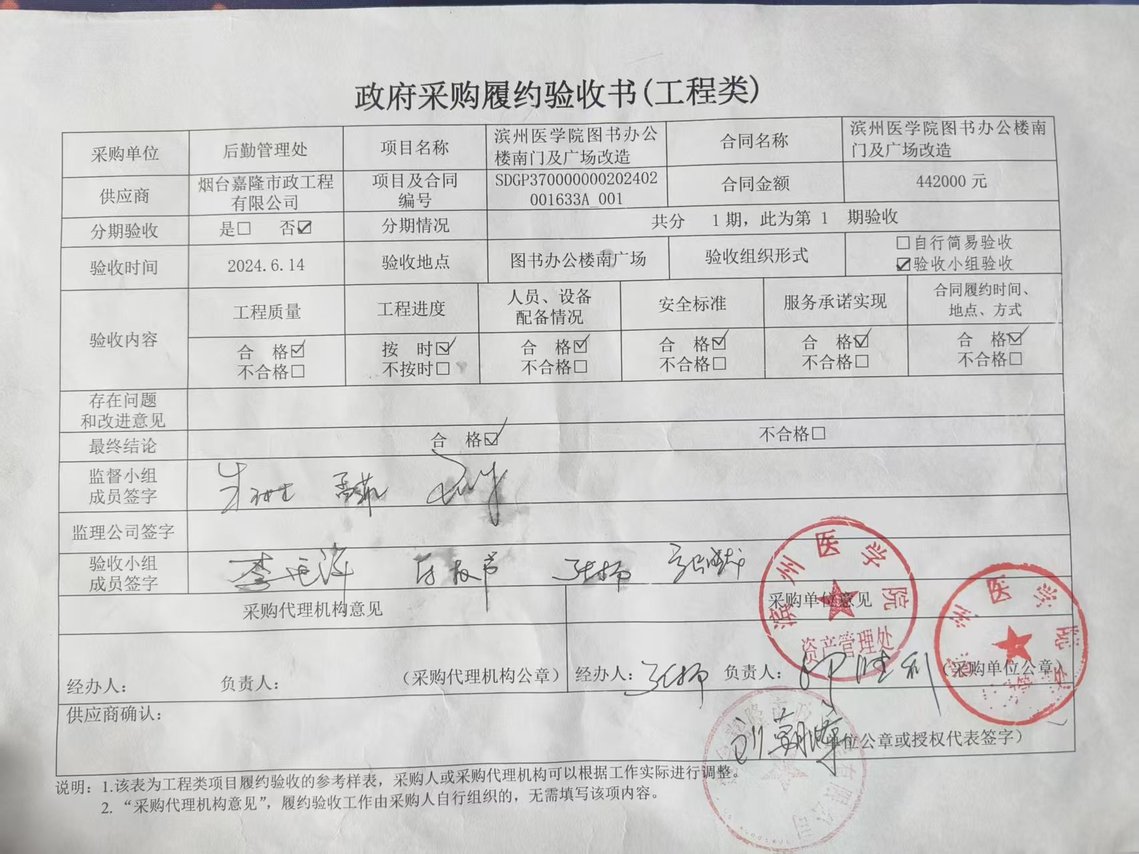 政府采购履约验收书(工程类)
采购单位 后勤管理处 项目名称 滨州医学院图书办公楼南门及广场改造 合同名称 滨州医学院图书办公楼南门及广场改造
供应商 烟台嘉隆市政工程有限公司 项目及合同编号 SDGP370000000202402001633A_001 合同金额 442000 元
分期验收 是□ 否☑ 分期情况 共分 1 期，此为第 1 期验收
验收时间 2024.6.14 验收地点 图书办公楼南广场 验收组织形式 □自行简易验收
☑验收小组验收
验收内容 工程质量 工程进度 人员、设备配备情况 安全标准 服务承诺实现 合同履约时间、地点、方式
合 格☑ 按 时☑ 合 格☑ 合 格☑ 合 格☑ 合 格☑
不合格□ 不按时□ 不合格□ 不合格□ 不合格□ 不合格□
存在问题
和改进意见
最终结论 合 格☑ 不合格□
监督小组
成员签字
监理公司签字
验收小组
成员签字
采购代理机构意见 采购单位意见
经办人： 负责人： （采购代理机构公章） 经办人： 负责人： （采购单位公章）
供应商确认：
单位公章或授权代表签字）
说明：1.该表为工程类项目履约验收的参考样表，采购人或采购代理机构可以根据工作实际进行调整。
2. “采购代理机构意见”，履约验收工作由采购人自行组织的，无需填写该项内容。
滨州医学院
资产管理处